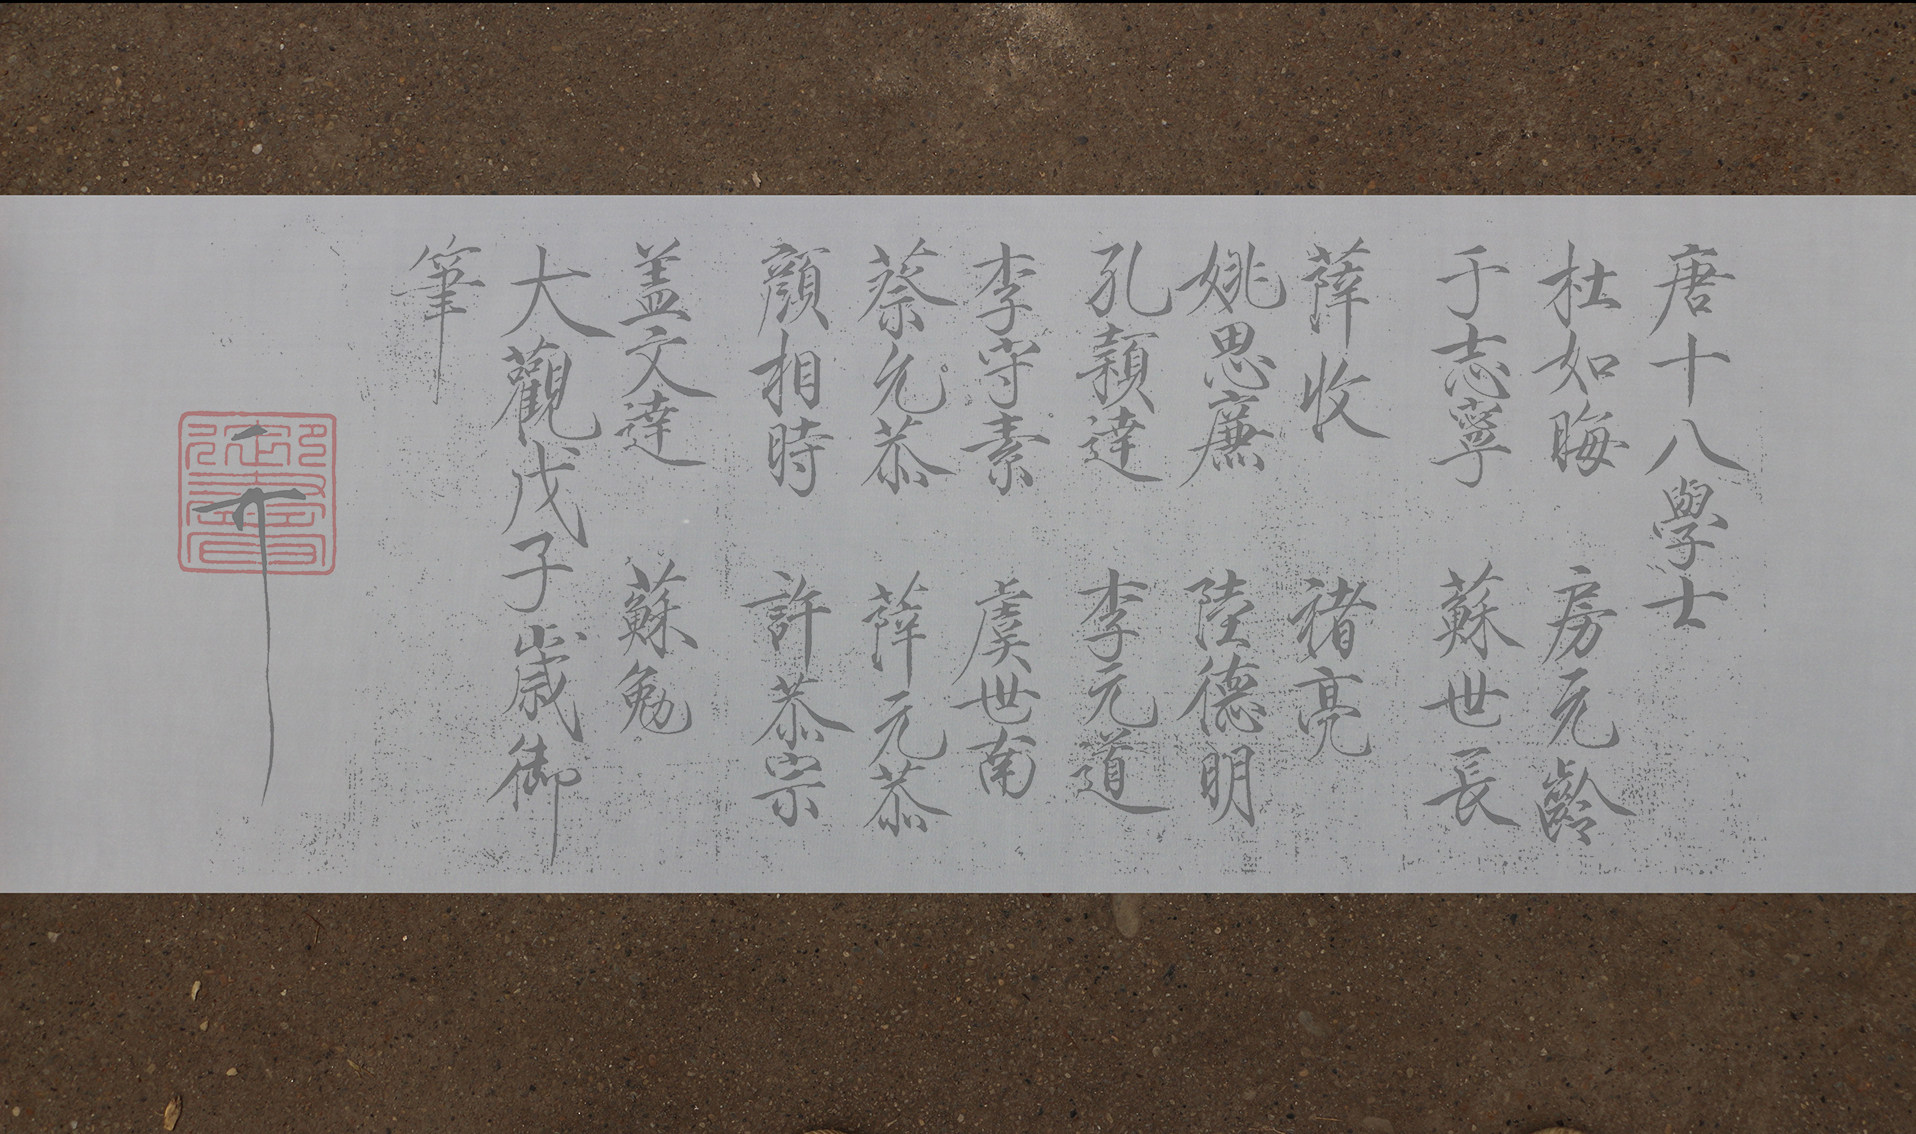 唐十八學士
杜如晦 房元齡
于志寧 蘇世長
薛收 褚亮
姚思廉 陸德明
孔穎達 李元道
李守素 虞世南
蔡允恭 薛元恭
顏相時 許恭宗
盖文達 蘇勉
大觀戊子歲御
筆